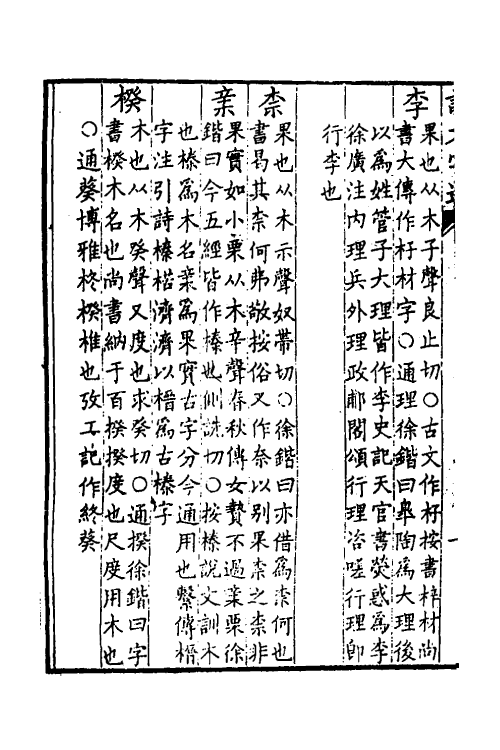 李
果也从木子聲良止切○古文作杍按書梓材尚
書大傳作杍材字○通理徐鍇曰臯陶爲大理後
以爲姓管子大理皆作李史記天官書熒惑爲李
徐廣注内理兵外理政郙閣頌行理咨嗟行理卽
行李也
柰
果也从木示聲奴帶切○徐鍇曰亦借爲柰何也
書曷其柰何弗敬按俗又作奈以别果柰之柰非
亲
果實如小栗从木辛聲春秋傳女贄不過亲栗徐
鍇曰今五經皆作榛也側詵切○按榛說文訓木
也榛爲木名亲爲果實古字分今通用也繫傳榗
字注引詩榛楛濟濟以榗爲古榛字
楑
木也从木癸聲又度也求癸切○通揆徐鍇曰字
書楑木名也尚書納于百楑揆度也尺度用木也
○通葵博雅柊楑椎也攷工記作終葵